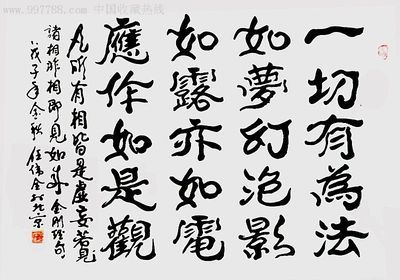 www.997788.com 中国收藏热线
一切有為法
如夢幻泡影
如露亦如電
應作如是觀
凡所有相皆是虛妄若見
諸相非相即見如来金剛經句
戊子年金秋任於北京